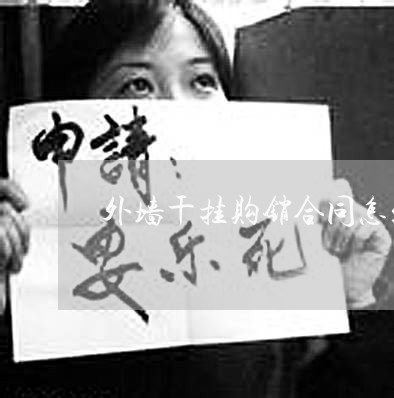 申請：
外墙干挂购销合同怎
安乐死